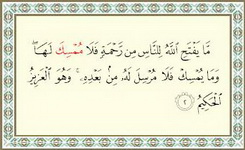 مَّا يَفْتَحِ ٱللَّهُ لِلنَّاسِ مِن رَّحْمَةٍ فَلَا مُمْسِكَ لَهَا ۖ
وَمَا يُمْسِكْ فَلَا مُرْسِلَ لَهُۥ مِنۢ بَعْدِهِۦ ۚ وَهُوَ ٱلْعَزِيزُ
ٱلْحَكِيمُ ٢